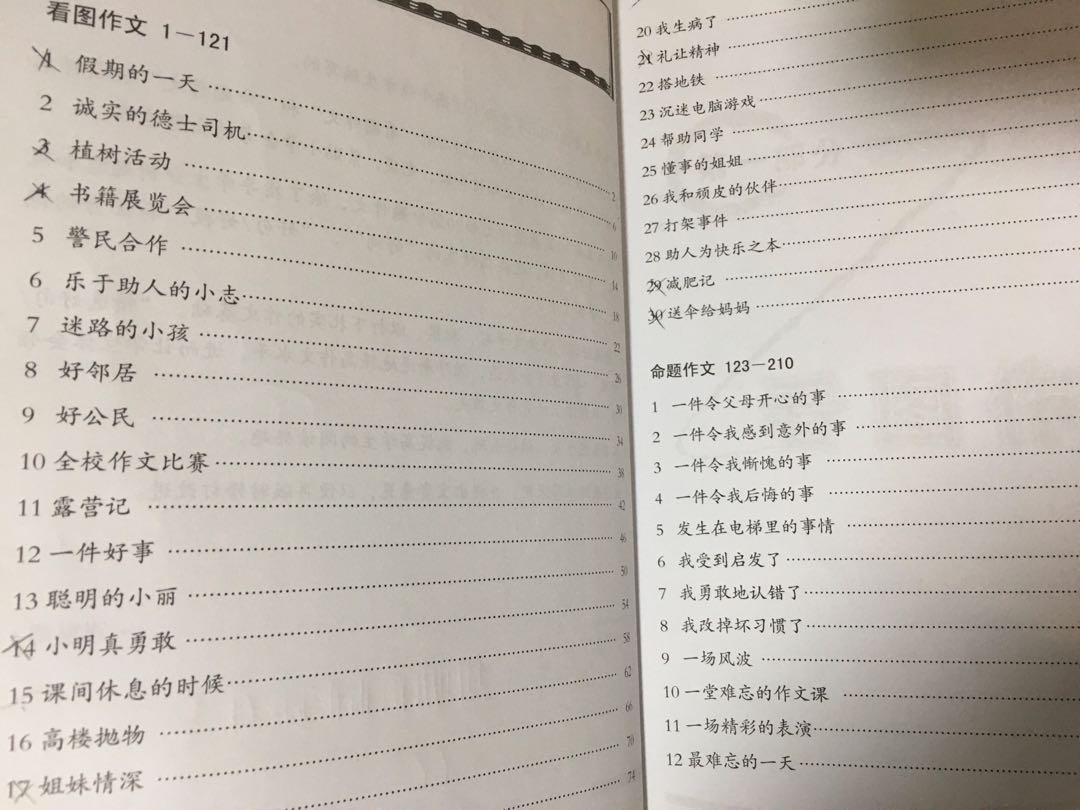 看图作文 1－121
1 假期的一天
2 诚实的德士司机
3 植树活动 2
4 书籍展览会 6
5 警民合作 10
6 乐于助人的小志 14
7 迷路的小孩 18
8 好邻居 22
9 好公民 26
10 全校作文比赛 30
11 露营记 34
12 一件好事 38
13 聪明的小丽 42
14 小明真勇敢 46
15 课间休息的时候 50
16 高楼抛物 54
17 姐妹情深 58
62
66
70
74
20 我生病了
21 礼让精神
22 搭地铁
23 沉迷电脑游戏
24 帮助同学
25 懂事的姐姐
26 我和顽皮的伙伴
27 打架事件
28 助人为快乐之本
29 减肥记
30 送伞给妈妈
命题作文 123－210
1 一件令父母开心的事
2 一件令我感到意外的事
3 一件令我惭愧的事
4 一件令我后悔的事
5 发生在电梯里的事情
6 我受到启发了
7 我勇敢地认错了
8 我改掉坏习惯了
9 一场风波
10 一堂难忘的作文课
11 一场精彩的表演
12 最难忘的一天